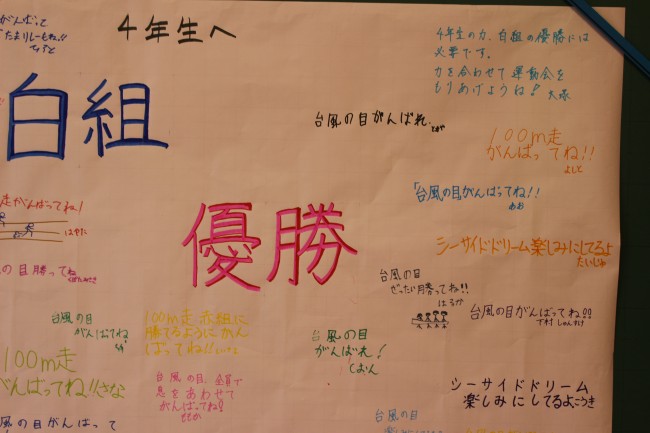 がんばって
４年生へ
４年生の力、白組の優勝には
必要です。
力を合わせて運動会を
もりあげようね！
白組
台風の目がんばれ
100m走
がんばってね!!
よしと
走がんばってね！
「台風の目がんばってね!!
優勝
シーサイドドリーム楽しみにしてるよ
の目勝ってね
台風の目
ぜったい勝ってね!!
はるか
台風の目がんばってね!!
台風の目
がんばってね
100m走 赤組に
勝てるようにがん
ばってね!!
台風の目
がんばれ！
しおん
100m走
がんばってね!!さな
台風の目、全員で
息をあわせて
がんばってね!!
シーサイドドリーム
楽しみにしてるよこうき
風の目がんばって
台風の目